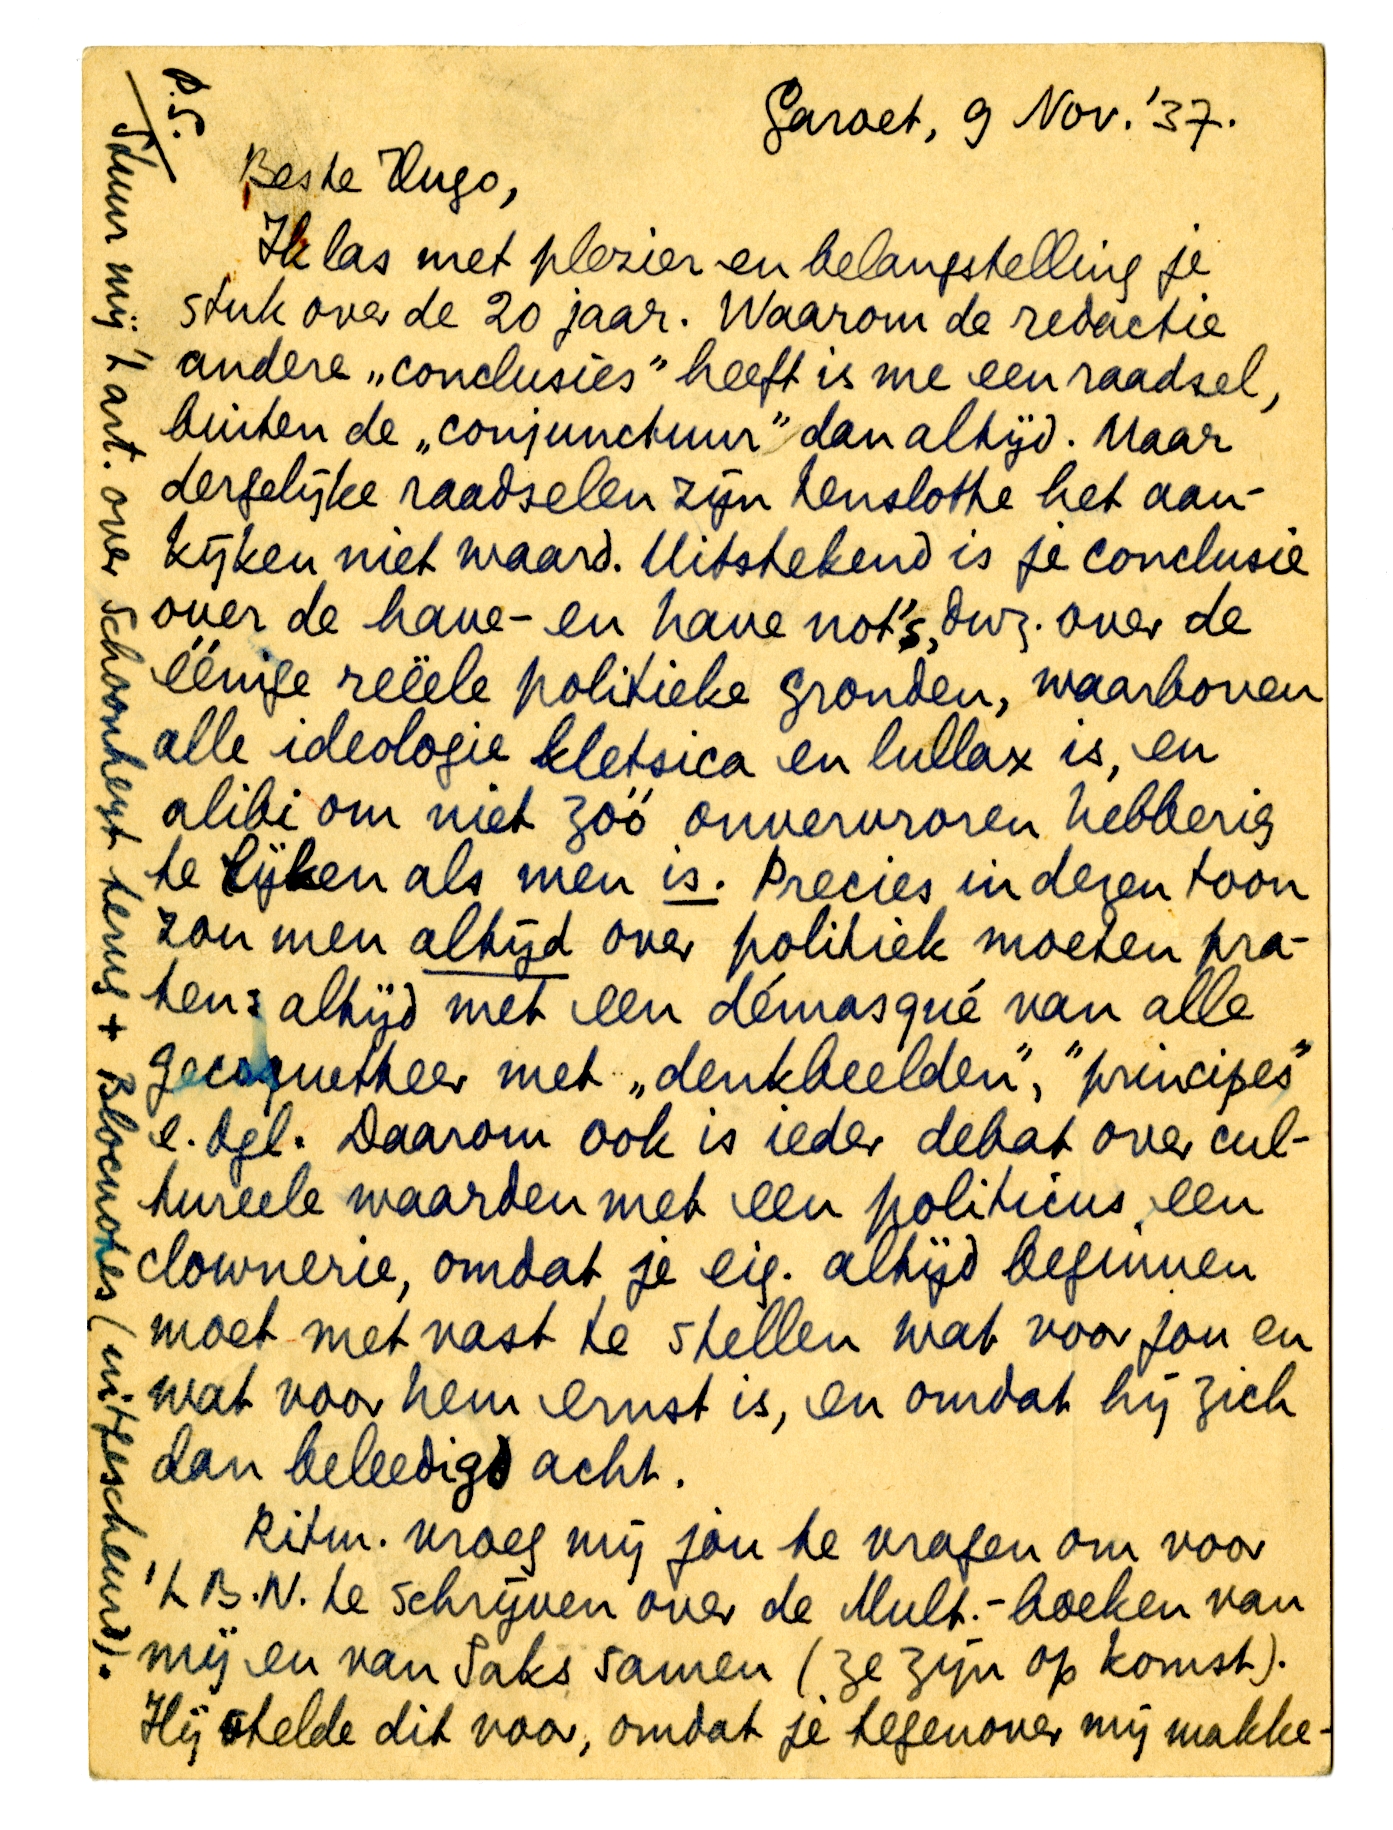 Garoet, 9 Nov. '37.
Beste Hugo,
Ik las met plezier en belangstelling je
stuk over de 20 jaar. Waarom de redactie
andere „conclusies” heeft is me een raadsel,
buiten de „conjunctuur” dan altijd. Maar
dergelijke raadselen zijn tenslotte het aan-
kijken niet waard. Uitstekend is je conclusie
over de have- en have not's, dwz. over de
éénige reëele politieke gronden, waarboven
alle ideologie kletsica en lullax is, en
alibi om niet zóó onvervroren hebberig
te lijken als men is. Precies in dezen toon
zou men altijd over politiek moeten pra-
ten: altijd met een démasqué van alle
gecoquetteer met „denkbeelden”, ”principes”
e. dgl. Daarom ook is ieder debat over cul-
tureele waarden met een politicus een
clownerie, omdat je eig. altijd beginnen
moet met vast te stellen wat voor jou en
wat voor hem ernst is, en omdat hij zich
dan beleedigd acht.
Ritm. vroeg mij jou te vragen om voor
't B.N. te schrijven over de Mult.-boeken van
mij en van Saks samen (ze zijn op komst).
Hij stelde dit voor, omdat je tegenover mij makke-
P.S.
Stuur mij 't art. over Schoonheyt terug + Blocnotes (uitgescheurd).